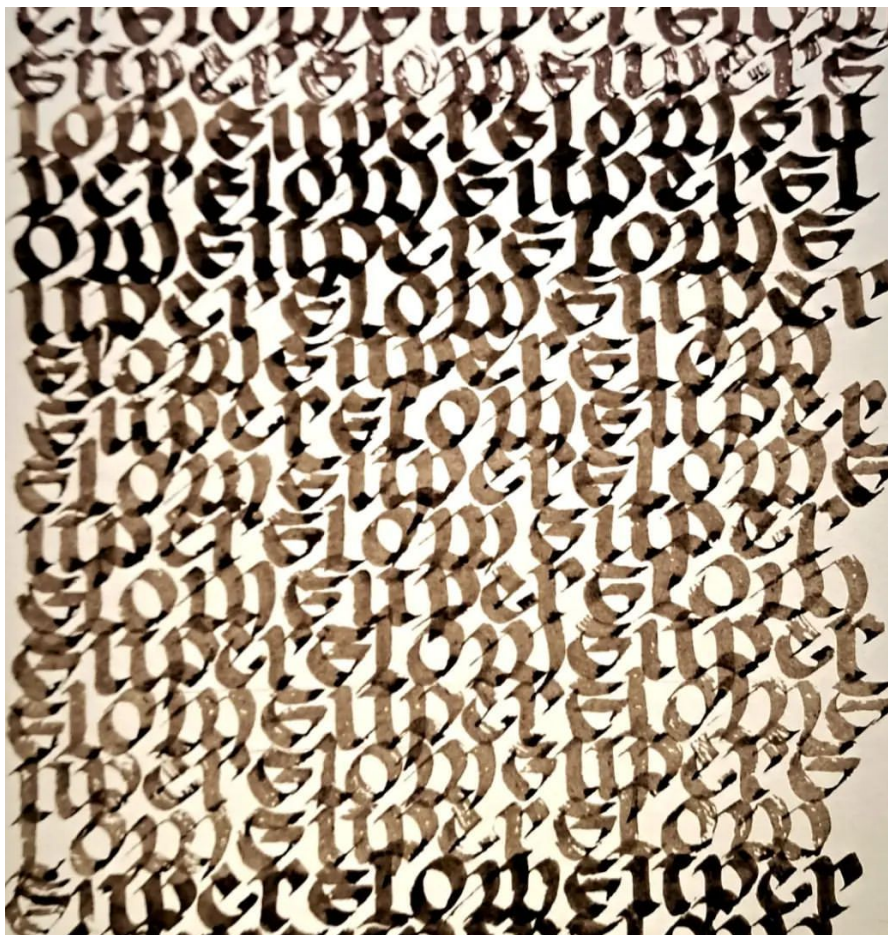 erslowsuperslow
superslowsupers
lowsuperslowsu
perslowsupersl
owsuperslows
uperslowsuper
slowsuperslow
superslowsuper
slowsuperslows
uperslowsuper
slowsuperslow
superslowsuper
slowsuperslows
uperslowsupers
lowsuperslow
superslowsuper